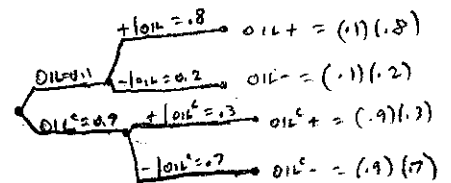 +|OIL = .8
OIL+ = (.1)(.8)
OIL=0.1
-|OIL = 0.2
OIL- = (.1)(.2)
OILᶜ=0.9
+|OILᶜ = .3
OILᶜ+ = (.9)(.3)
-|OILᶜ = .7
OILᶜ- = (.9)(.7)